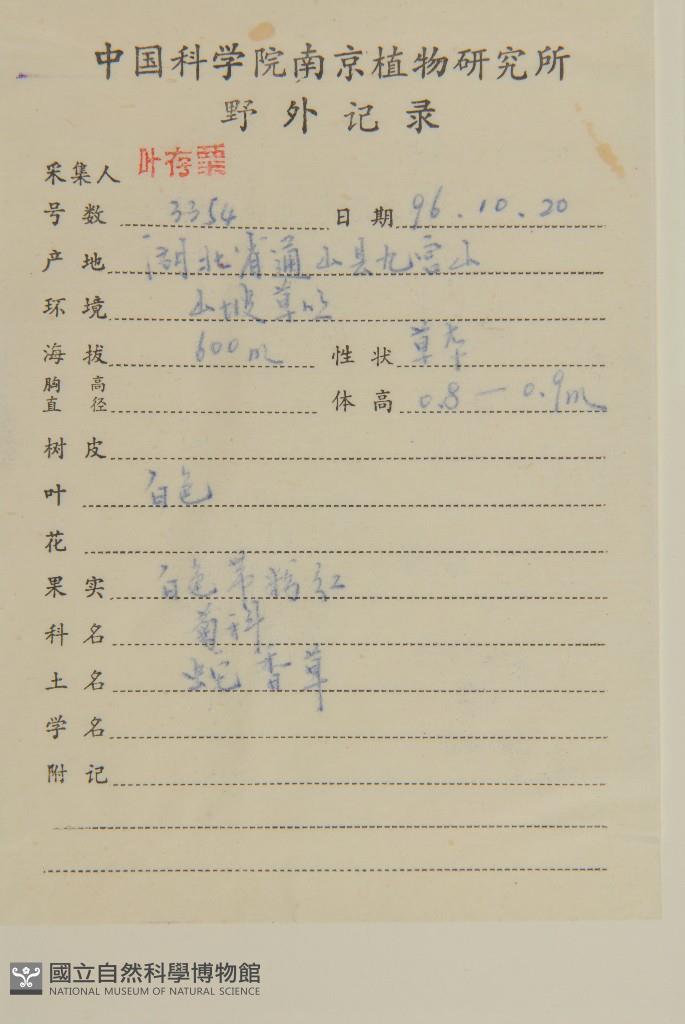 中国科学院南京植物研究所
野外记录
采集人 叶存粟
号数 3354 日期 96.10.20
产地 湖北省通山县九宫山
环境 山坡草丛
海拔 600m 性状 草本
胸高直径 体高 0.8—0.9m
树皮
叶 白色
花
果实 白色带粉红
科名 菊科
土名 蛇香草
学名
附记
國立自然科學博物館
NATIONAL MUSEUM OF NATURAL SCIENCE